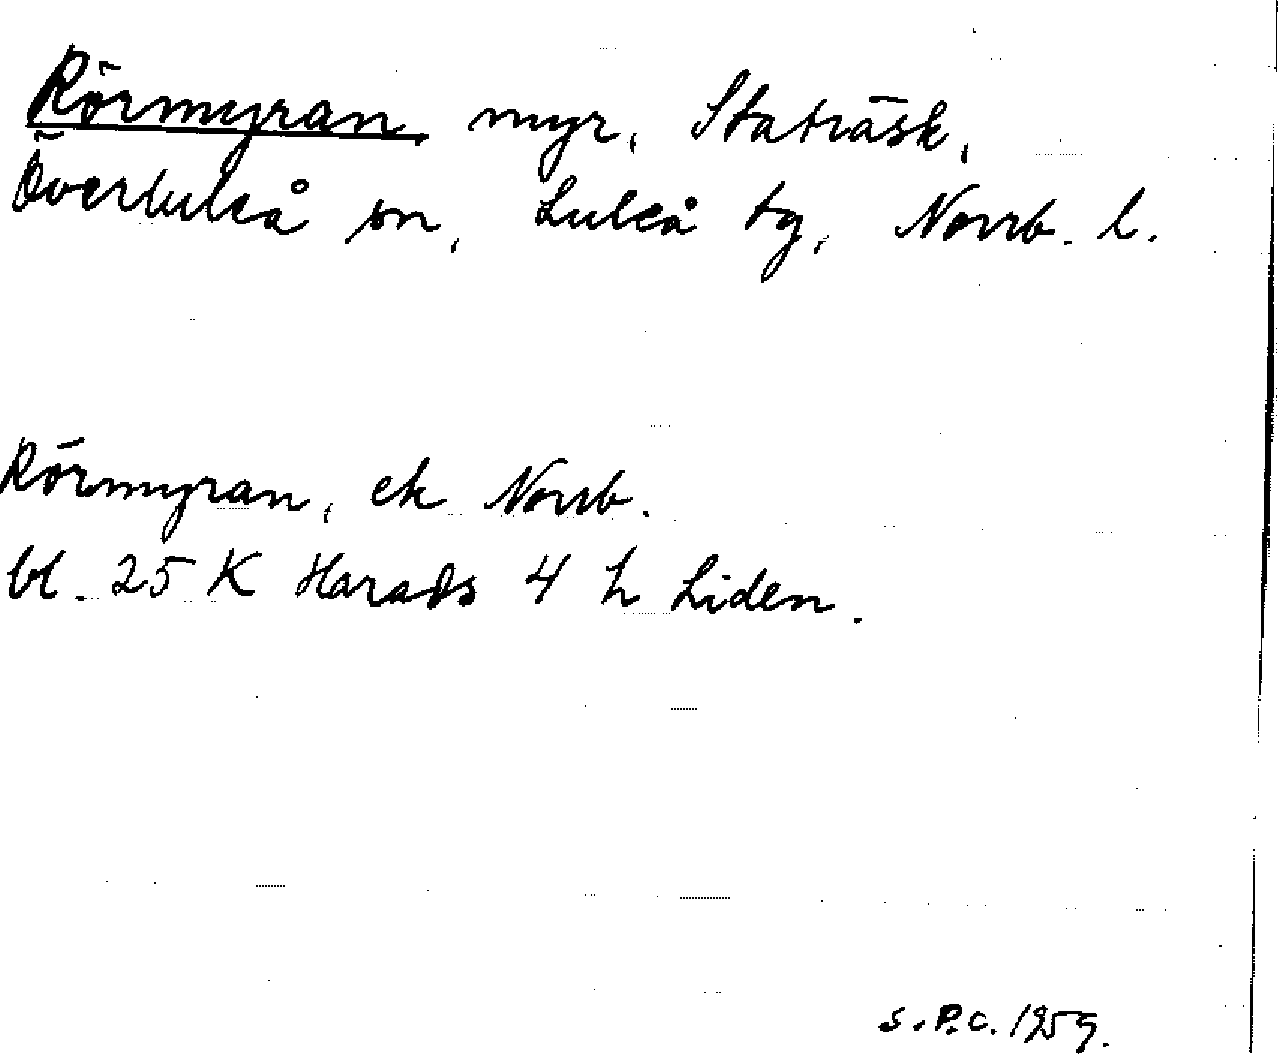 Rörmyran, myr, Staträsk,
Överluleå sn, Luleå tg, Norrb. l.
Rörmyran, ek Norrb.
bl. 25 K Harads 4 h Liden.
S.P.C. 1959.